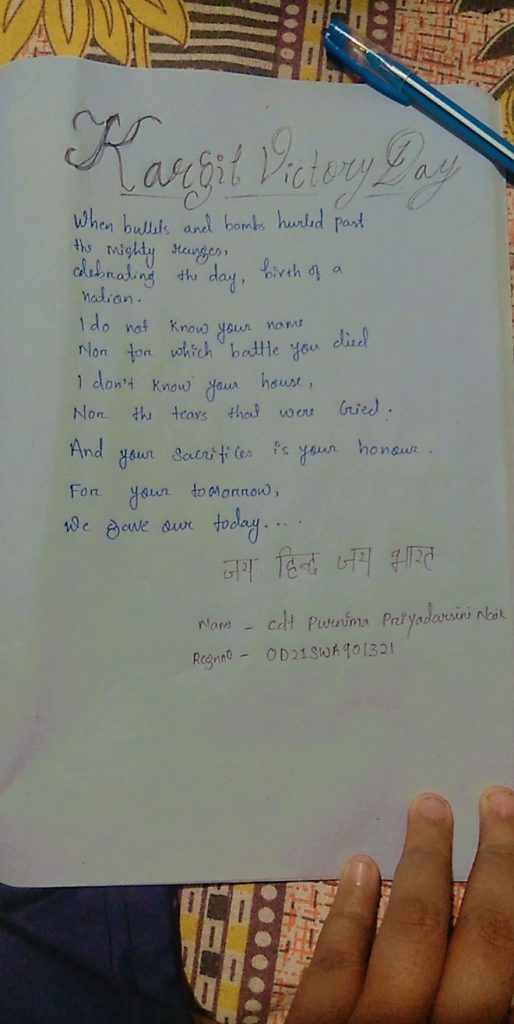 Kargil Victory Day
When bullets and bombs hurled past
the mighty ranges,
celebrating the day, birth of a
nation.
I do not know your name
Nor for which battle you died
I don't know your house,
Nor the tears that were Cried.
And your Sacrifices is your honour.
For your tomorrow,
We gave our today....
जय हिन्द जय भारत
Name - cdt Purnima Priyadarsini Naik
Regnno - OD21SWA901321